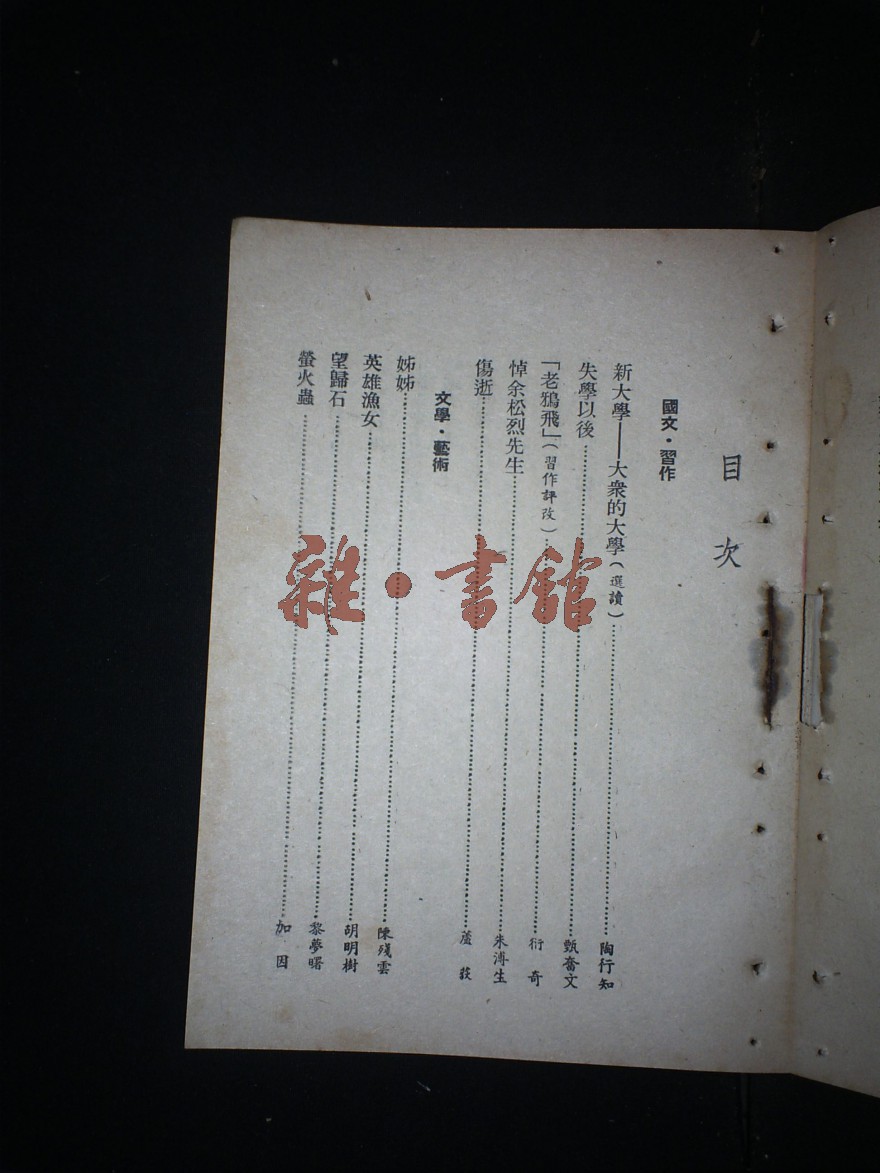 目次
國文・習作
新大學——大衆的大學(選讀)……陶行知
失學以後……甄奮文
「老鴉飛」(習作評改)……衍奇
悼余松烈先生……朱溥生
傷逝……蘆荻
文學・藝術
姊姊……陳殘雲
英雄漁女……胡明樹
望歸石……黎夢曙
螢火蟲……加因
雜・書館